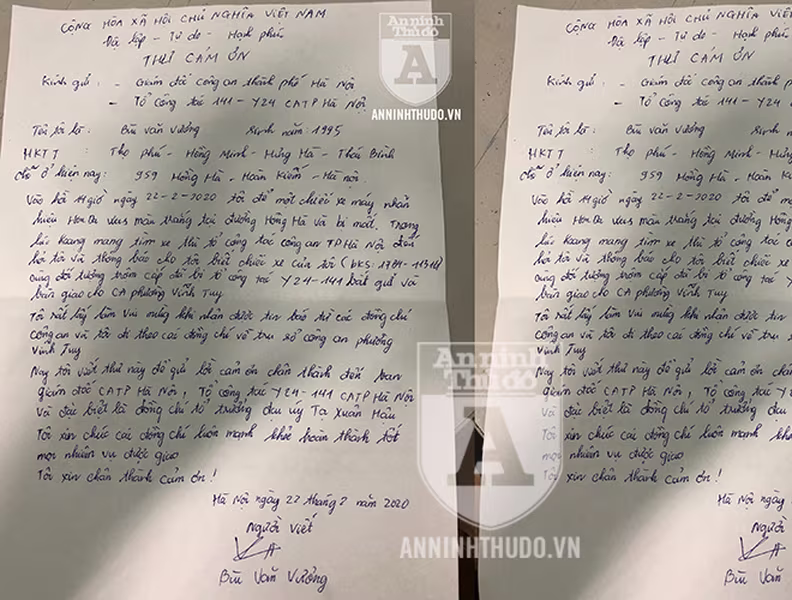 CỘNG HÒA XÃ HỘI CHỦ NGHĨA VIỆT NAM
Độc lập - Tự do - Hạnh phúc
THƯ CẢM ƠN
Kính gửi : - Giám đốc công an thành phố Hà Nội
- Tổ Công tác 141 - Y24 CATP Hà Nội
Tên tôi là : Bùi Văn Vưởng Sinh năm: 1995
HKTT : Thọ phú - Hồng Minh - Hưng Hà - Thái Bình
Chỗ ở hiện nay: 959 Hồng Hà - Hoàn Kiếm - Hà nội.
Vào hồi 14 giờ ngày 22-2-2020 tôi để một chiếc xe máy nhãn
hiệu Honda Vius màu trắng tại đường Hồng Hà và bị mất. Trong
lúc đang mang tìm xe thì tổ công tác công an TP Hà Nội đến
hỏi tôi và thông báo cho tôi biết chiếc xe của tôi (BKS:
cùng đối tượng trộm cấp đã bị tổ công tác Y24-141 bắt giữ và
bàn giao cho CA phường Vĩnh Tuy
Tôi rất lấy làm vui mừng khi nhận được tin báo từ các đồng chí
công an và tôi đi theo các đồng chí về trụ sở công an phường
Vĩnh Tuy
Nay tôi viết thư này để gửi lời cảm ơn chân thành đến ban
giám đốc CATP Hà Nội, Tổ công tác Y24-141 CATP Hà Nội
Và đặc biệt là đồng chí tổ trưởng đại uý Tạ Xuân Hậu
Tôi xin chúc các đồng chí luôn mạnh khỏe hoàn thành tốt
mọi nhiệm vụ được giao
Tôi xin chân thành cảm ơn!
Hà Nội ngày 22 tháng 2 năm 2020
Người viết
Bùi Văn Vưởng
CỘNG HÒA XÃ HỘI CHỦ NGHĨA VIỆT
Độc lập - Tự do - Hạnh phúc
THƯ CẢM ƠN
Kính gửi : - Giám đốc công an thành phố
- Tổ Công tác 141 - Y24
Tên tôi là : Bùi Văn Vưởng Sinh
HKTT : Thọ phú - Hồng Minh - Hưng
Chỗ ở hiện nay: 959 Hồng Hà - Hoàn Kiếm
Vào hồi 14 giờ ngày 22-2-2020 tôi để một
hiệu Honda Vius màu trắng tại đường Hồng
lúc đang mang tìm xe thì tổ công tác
hỏi tôi và thông báo cho tôi biết chiếc xe
cùng đối tượng trộm cấp đã bị tổ công tác
bàn giao cho CA phường Vĩnh Tuy
Tôi rất lấy làm vui mừng khi nhận được tin
công an và tôi đi theo các đồng chí về
Vĩnh Tuy
Nay tôi viết thư này để gửi lời cảm ơn
giám đốc CATP Hà Nội, Tổ công tác
Và đặc biệt là đồng chí tổ trưởng
Tôi xin chúc các đồng chí luôn mạnh
mọi nhiệm vụ được giao
Tôi xin chân thành cảm ơn!
Hà Nội ngày
Người
Bùi Văn
An ninh
Thủ đô
A
ANNINHTHUDO.VN
An ninh
Thủ đô
A
ANNINHTHUDO.VN